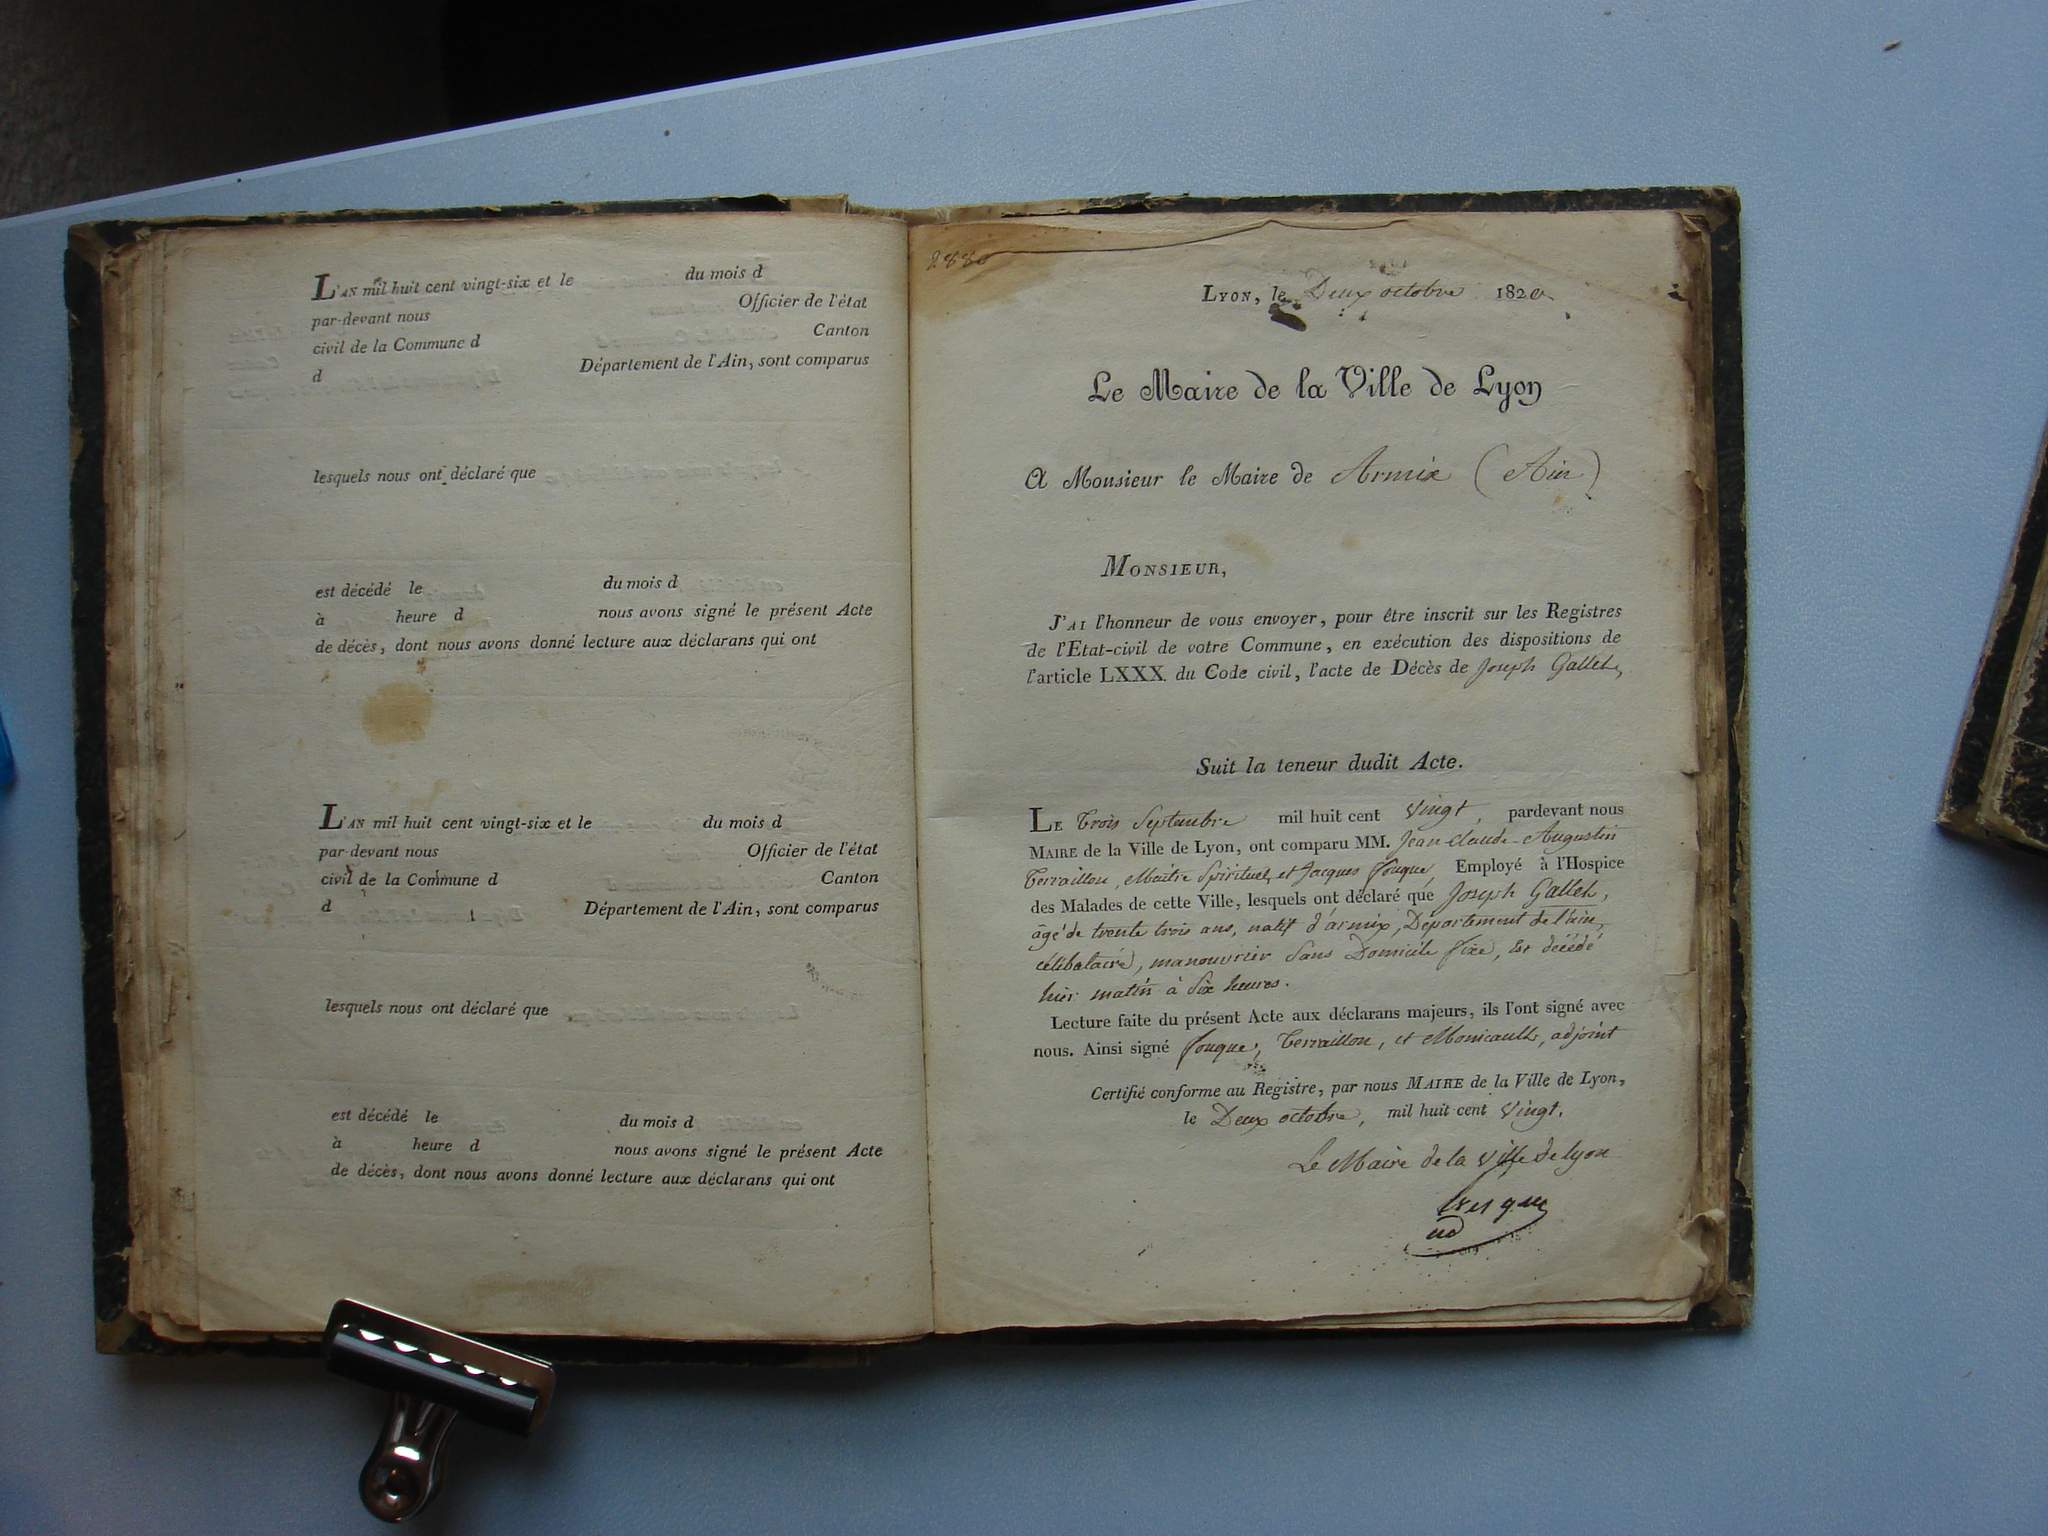 L'AN mil huit cent vingt-six et le du mois d
par-devant nous Officier de l'état
civil de la Commune d Canton
d Département de l'Ain, sont comparus
lesquels nous ont déclaré que
est décédé le du mois d
à heure d nous avons signé le présent Acte
de décès, dont nous avons donné lecture aux déclarans qui ont
L'AN mil huit cent vingt-six et le du mois d
par-devant nous Officier de l'état
civil de la Commune d Canton
d Département de l'Ain, sont comparus
lesquels nous ont déclaré que
est décédé le du mois d
à heure d nous avons signé le présent Acte
de décès, dont nous avons donné lecture aux déclarans qui ont
2880
LYON, le Deux octobre 1820
Le Maire de la Ville de Lyon
A Monsieur le Maire de Armix (Ain)
MONSIEUR,
J'AI l'honneur de vous envoyer, pour être inscrit sur les Registres
de l'Etat-civil de votre Commune, en exécution des dispositions de
l'article LXXX du Code civil, l'acte de Décès de Joseph Gallet,
Suit la teneur dudit Acte.
LE Trois Septembre mil huit cent Vingt, pardevant nous
MAIRE de la Ville de Lyon, ont comparu MM. Jean-Claude-Augustin
Terraillon, Maître Spirituel, et Jacques Fouque, Employé à l'Hospice
des Malades de cette Ville, lesquels ont déclaré que Joseph Gallet,
âgé de trente trois ans, natif d'armix, Département de l'ain,
célibataire, manouvrier Sans Domicile fixe, Est décédé
hier matin à Six heures.
Lecture faite du présent Acte aux déclarans majeurs, ils l'ont signé avec
nous. Ainsi signé Fouque, Terraillon, et Monicault, adjoint
Certifié conforme au Registre, par nous MAIRE de la Ville de Lyon,
le Deux octobre, mil huit cent Vingt.
Le Maire de la Ville de Lyon